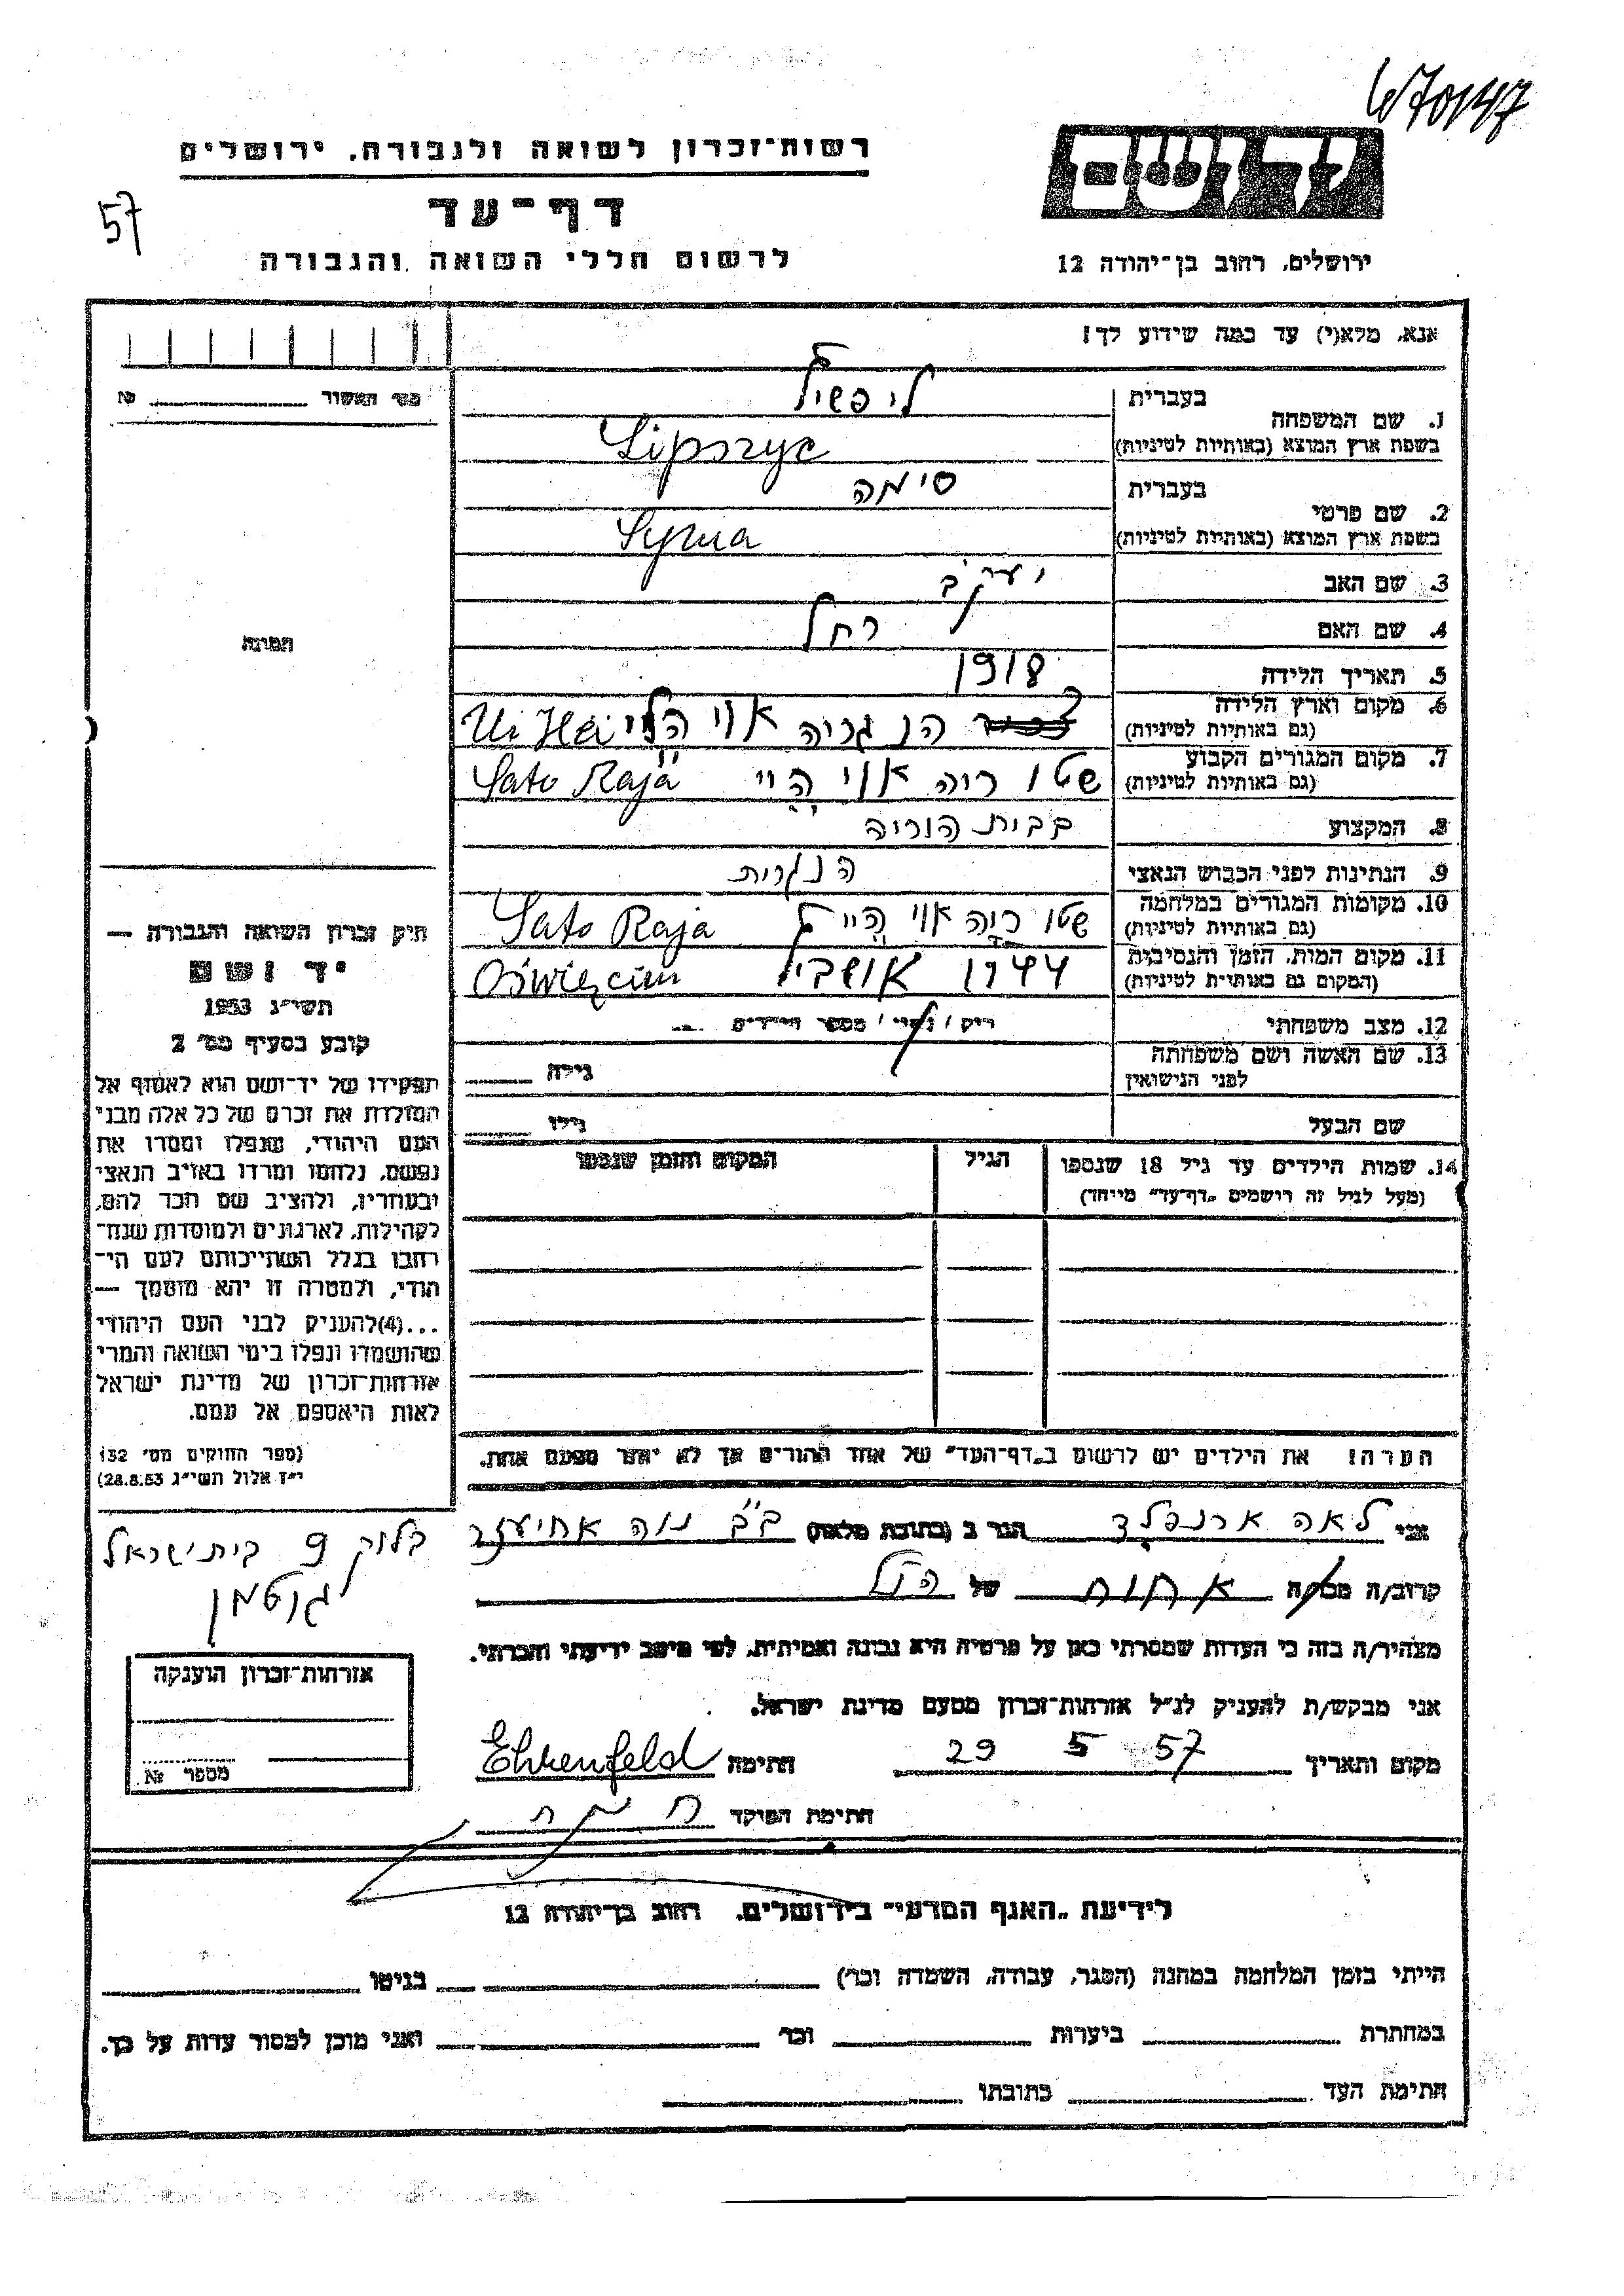 670147
רשות־זכרון לשואה ולגבורה, ירושלים
דף־עד
57
לרשום חללי השואה והגבורה
ידושם
ירושלים, רחוב בן־יהודה 12
אנא, מלא(י) עד כמה שידוע לך!
מס׳ האשור № 
1. שם המשפחה
בעברית
בשפת ארץ המוצא (באותיות לטיניות)
Lipszyc
2. שם פרטי
בעברית סימה
בשפת ארץ המוצא (באותיות לטיניות)
Syma
3. שם האב יעקב
4. שם האם רחל
5. תאריך הלידה 1918
6. מקום וארץ הלידה הנגריה אוי
(גם באותיות לטיניות)
7. מקום המגורים הקבוע שטו ריה אוי היי Sato Raja
(גם באותיות לטיניות)
8. המקצוע בבית הוריה
9. הנתינות לפני הכבוש הנאצי הנגרית
10. מקומות המגורים במלחמה שטו ריה אוי היי Sato Raja
(גם באותיות לטיניות)
11. מקום המות, הזמן והנסיבות 1944 Oświęcim
(המקום גם באותיות לטיניות)
12. מצב משפחתי רוק / נשוי / מספר הילדים
13. שם האשה ושם משפחתה
לפני הנישואין
גילה
שם הבעל גילו
14. שמות הילדים עד גיל 18 שנספו
(מעל לגיל זה רושמים „דף־עד״ מיוחד)
הגיל
המקום והזמן שנספו
הערה! את הילדים יש לרשום ב„דף־העד״ של אחד ההורים אך לא יותר מפעם אחת.
התמונה
חוק זכרון השואה והגבורה —
יד ושם
תשי״ג 1953
קובע בסעיף מס׳ 2
תפקידו של יד־ושם הוא לאסוף אל
המולדת את זכרם של כל אלה מבני
העם היהודי, שנפלו ומסרו את
נפשם, נלחמו ומרדו באויב הנאצי
ובעוזריו, ולהציב שם וזכר להם,
לקהילות, לארגונים ולמוסדות שנח־
רבו בגלל השתייכותם לעם הי־
הודי, ולמטרה זו יהא מוסמך —
...(4) להעניק לבני העם היהודי
שהושמדו ונפלו בימי השואה והמרי
אזרחות־זכרון של מדינת ישראל
לאות היאספם אל עמם.
(ספר החוקים מס׳ 132
י״ז אלול תשי״ג 28.8.53)
אני לאה ארנפלד הגר ב (כתובת מלאה) ב״ב נוה אחיעזר
בלוק 9 בית ישראל
גוטמן
קרוב/ה מכר/ה אחות של הנ״ל
מצהיר/ה בזה כי העדות שמסרתי כאן על פרטיה היא נכונה ואמיתית, לפי מיטב ידיעתי והכרתי.
אני מבקש/ת להעניק לנ״ל אזרחות־זכרון מטעם מדינת ישראל.
מקום ותאריך 29 5 57 חתימה Ehrenfeld
חתימת הפוקד
אזרחות־זכרון הוענקה
מספר №
לידיעת „האגף המדעי״ בירושלים, רחוב בן־יהודה 12
הייתי בזמן המלחמה במחנה (הסגר, עבודה, השמדה וכו׳) בגיטו
במחתרת ביערות וכו׳ ואני מוכן למסור עדות על כך.
חתימת העד כתובתו